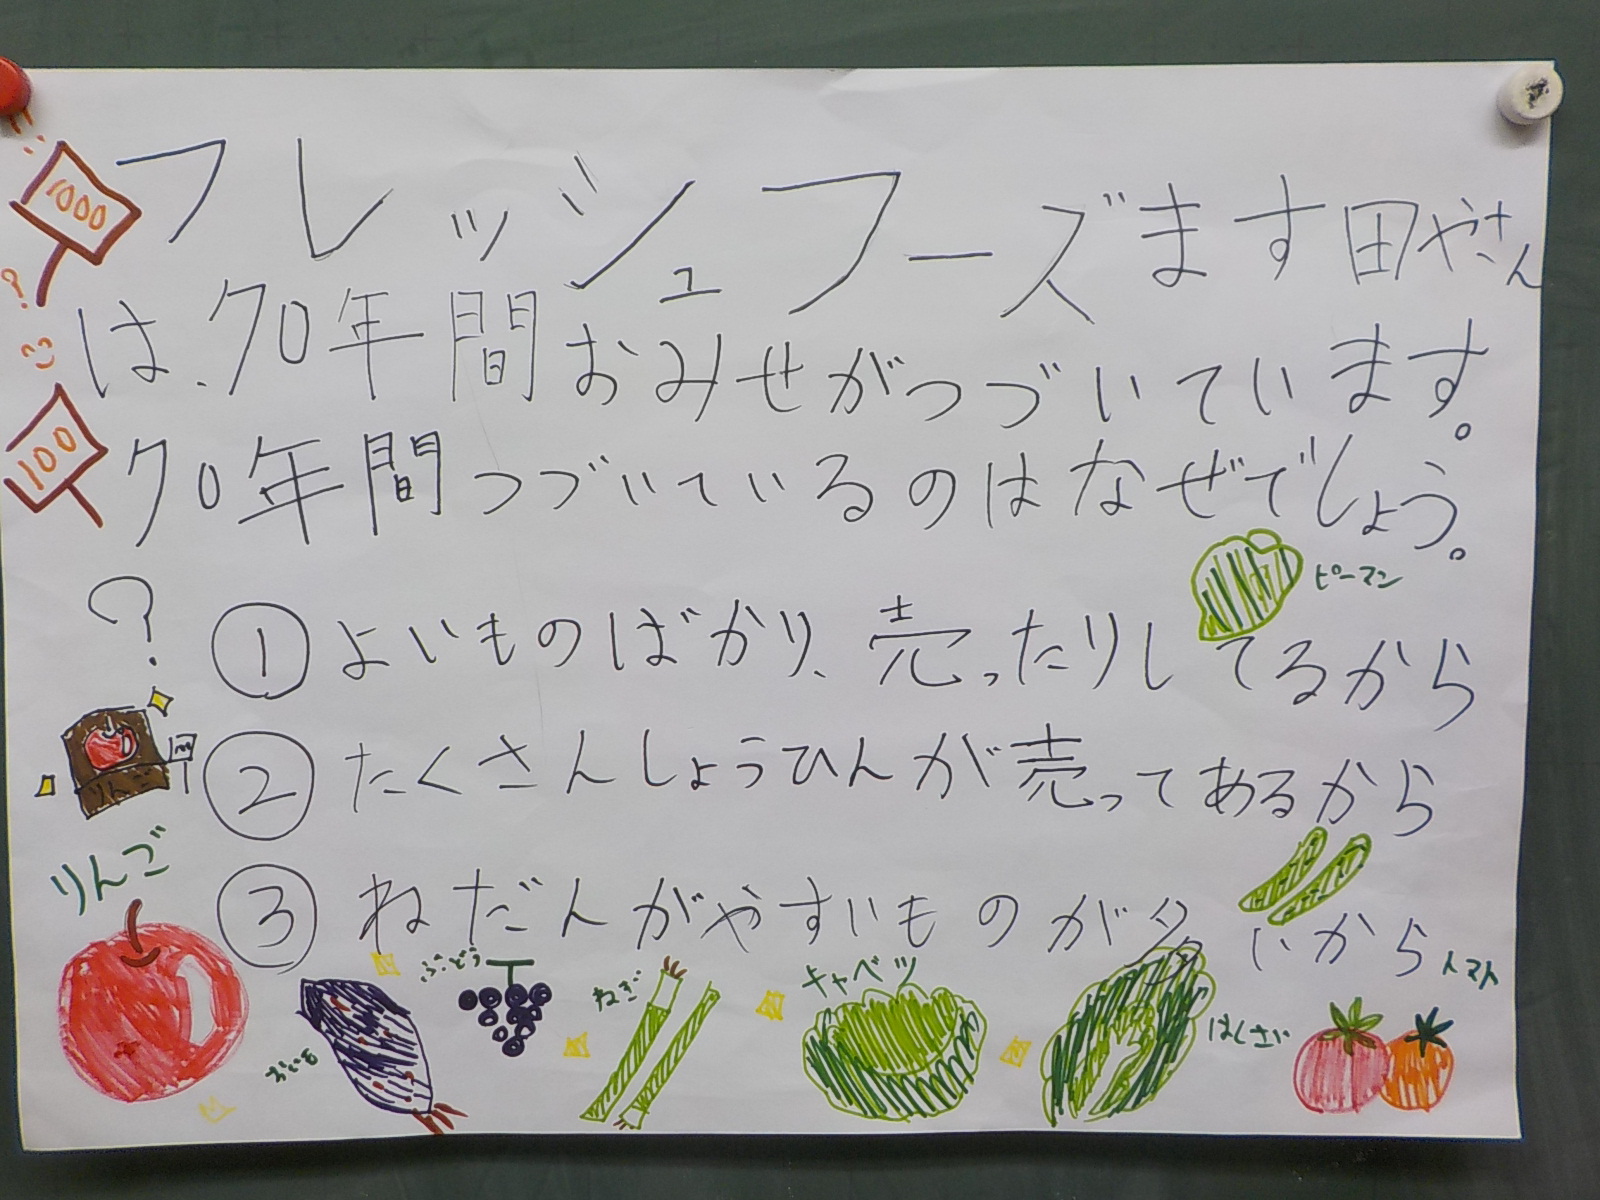 フレッシュフーズます田やさん
は、70年間おみせがつづいています。
70年間つづいているのはなぜでしょう。
?
①よいものばかり、売ったりしてるから
②たくさんしょうひんが売ってあるから
③ねだんがやすいものが多いから
1000
?
100
ピーマン
りんご
100
りんご
おいも
ぶどう
ねぎ
キャベツ
はくさい
トマト